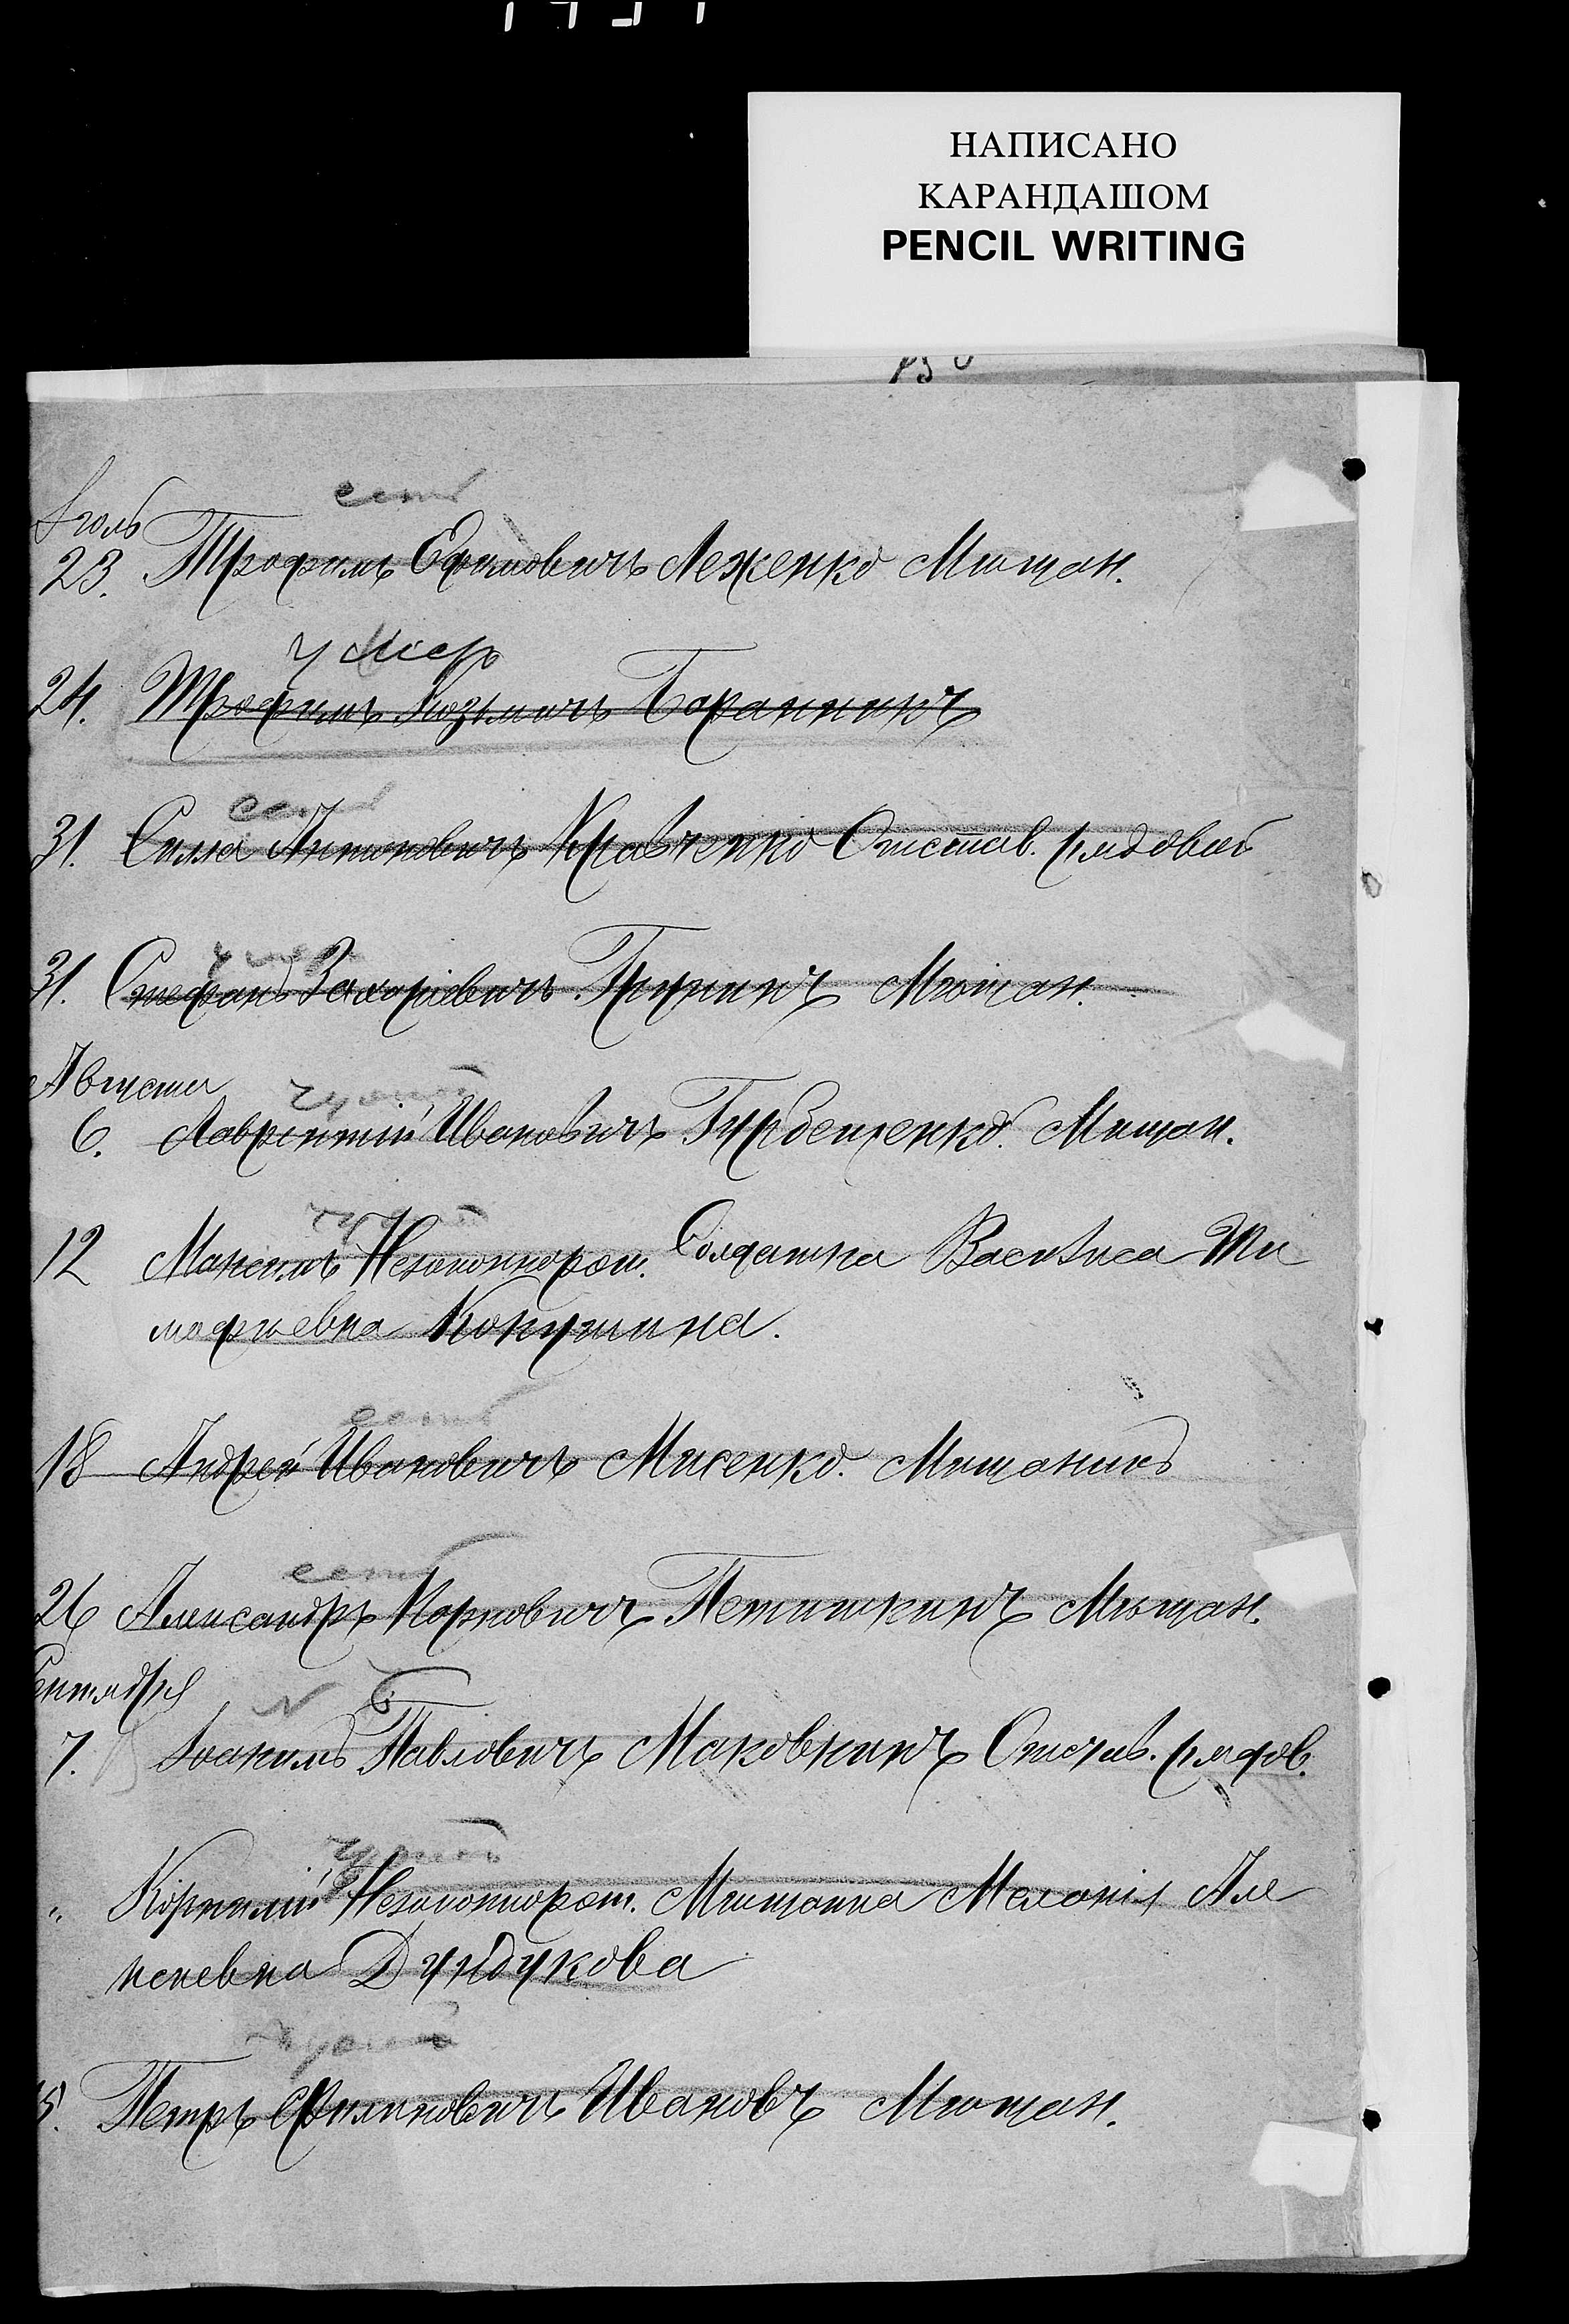 НАПИСАНО
КАРАНДАШОМ
PENCIL WRITING
есть
Іюль
23. Трофимъ Ефимовичъ Леженко Мѣщан.
умер
24. Трофимъ Козьмичъ Баранникъ
есть
31. Сила Антоновичъ Кравченко Отстав. рядовой
умер
31. Стефанъ Захаріевичъ Мѣщан.
Августа
чужой
6. Лаврентій Ивановичъ Мѣщан.
чужой
12 Максимъ Незаконнорож. Солдатка Василиса Ти
мофѣевна Кокушина.
есть
18 Андрей Ивановичъ Мисенко. Мѣщанинъ
есть
26 Александръ Карповичъ Петишкинъ Мѣщан.
Сентября
7. Іоакимъ Павловичъ Маковкинъ Отстав. рядов.
чужой
" Корнилій Незаконнорож. Мѣщанка Меланія Але
ксѣевна Дундукова
чужой
5. Петръ Филиповичъ Ивановъ Мѣщан.